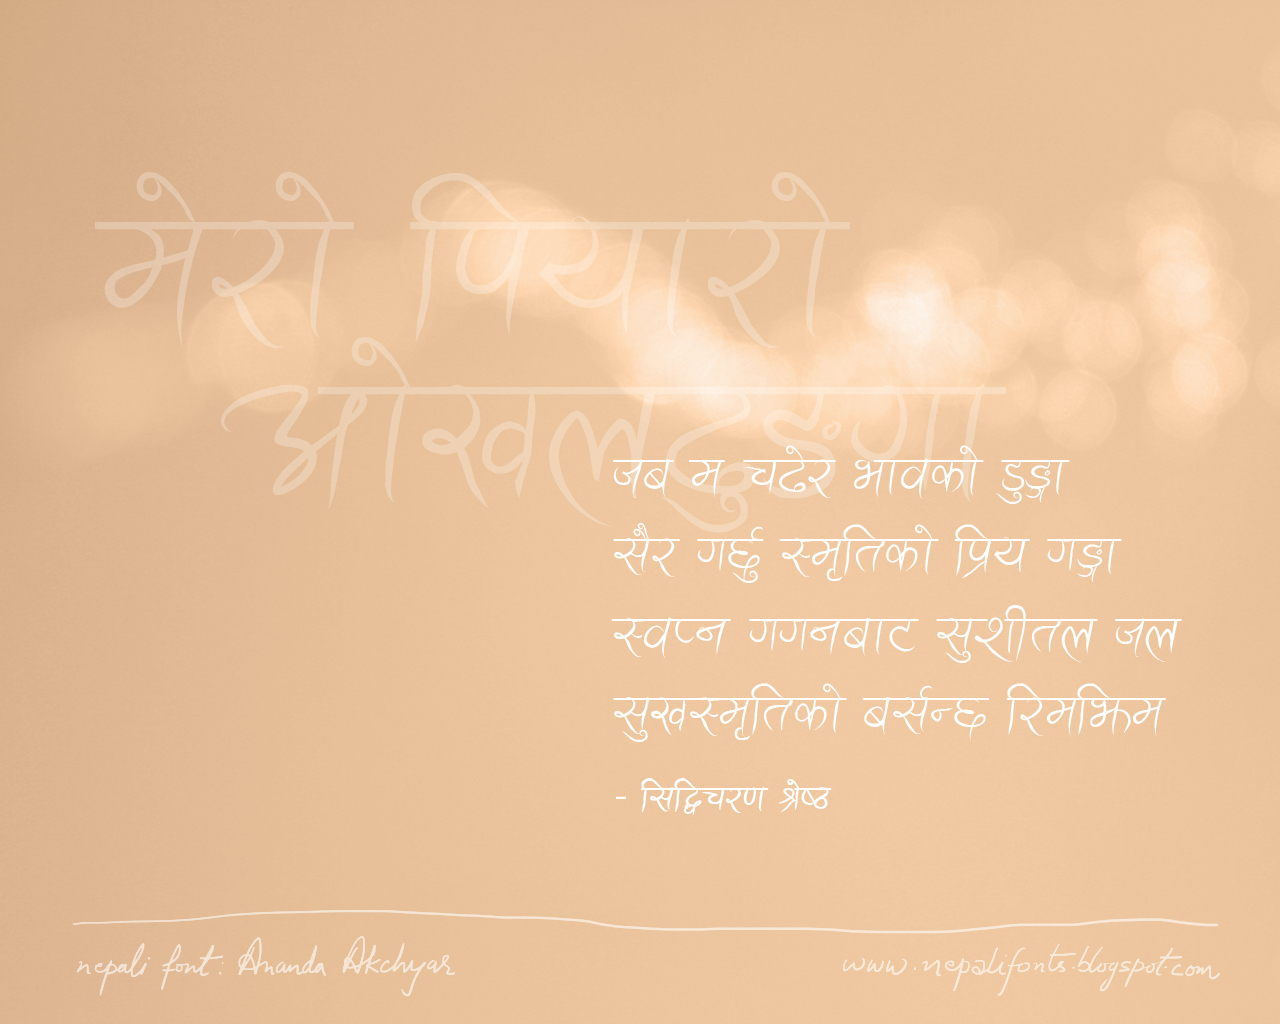 मेरो पियारो
ओखलढुङगा
जब म चढेर भावको डुङ्गा
सैर गर्छु स्मृतिको प्रिय गङ्गा
स्वप्न गगनबाट सुशीतल जल
सुखस्मृतिको बर्सन्छ रिमझिम
- सिद्धिचरण श्रेष्ठ
nepali font: Ananda Akchyar
www.nepalifonts.blogspot.com